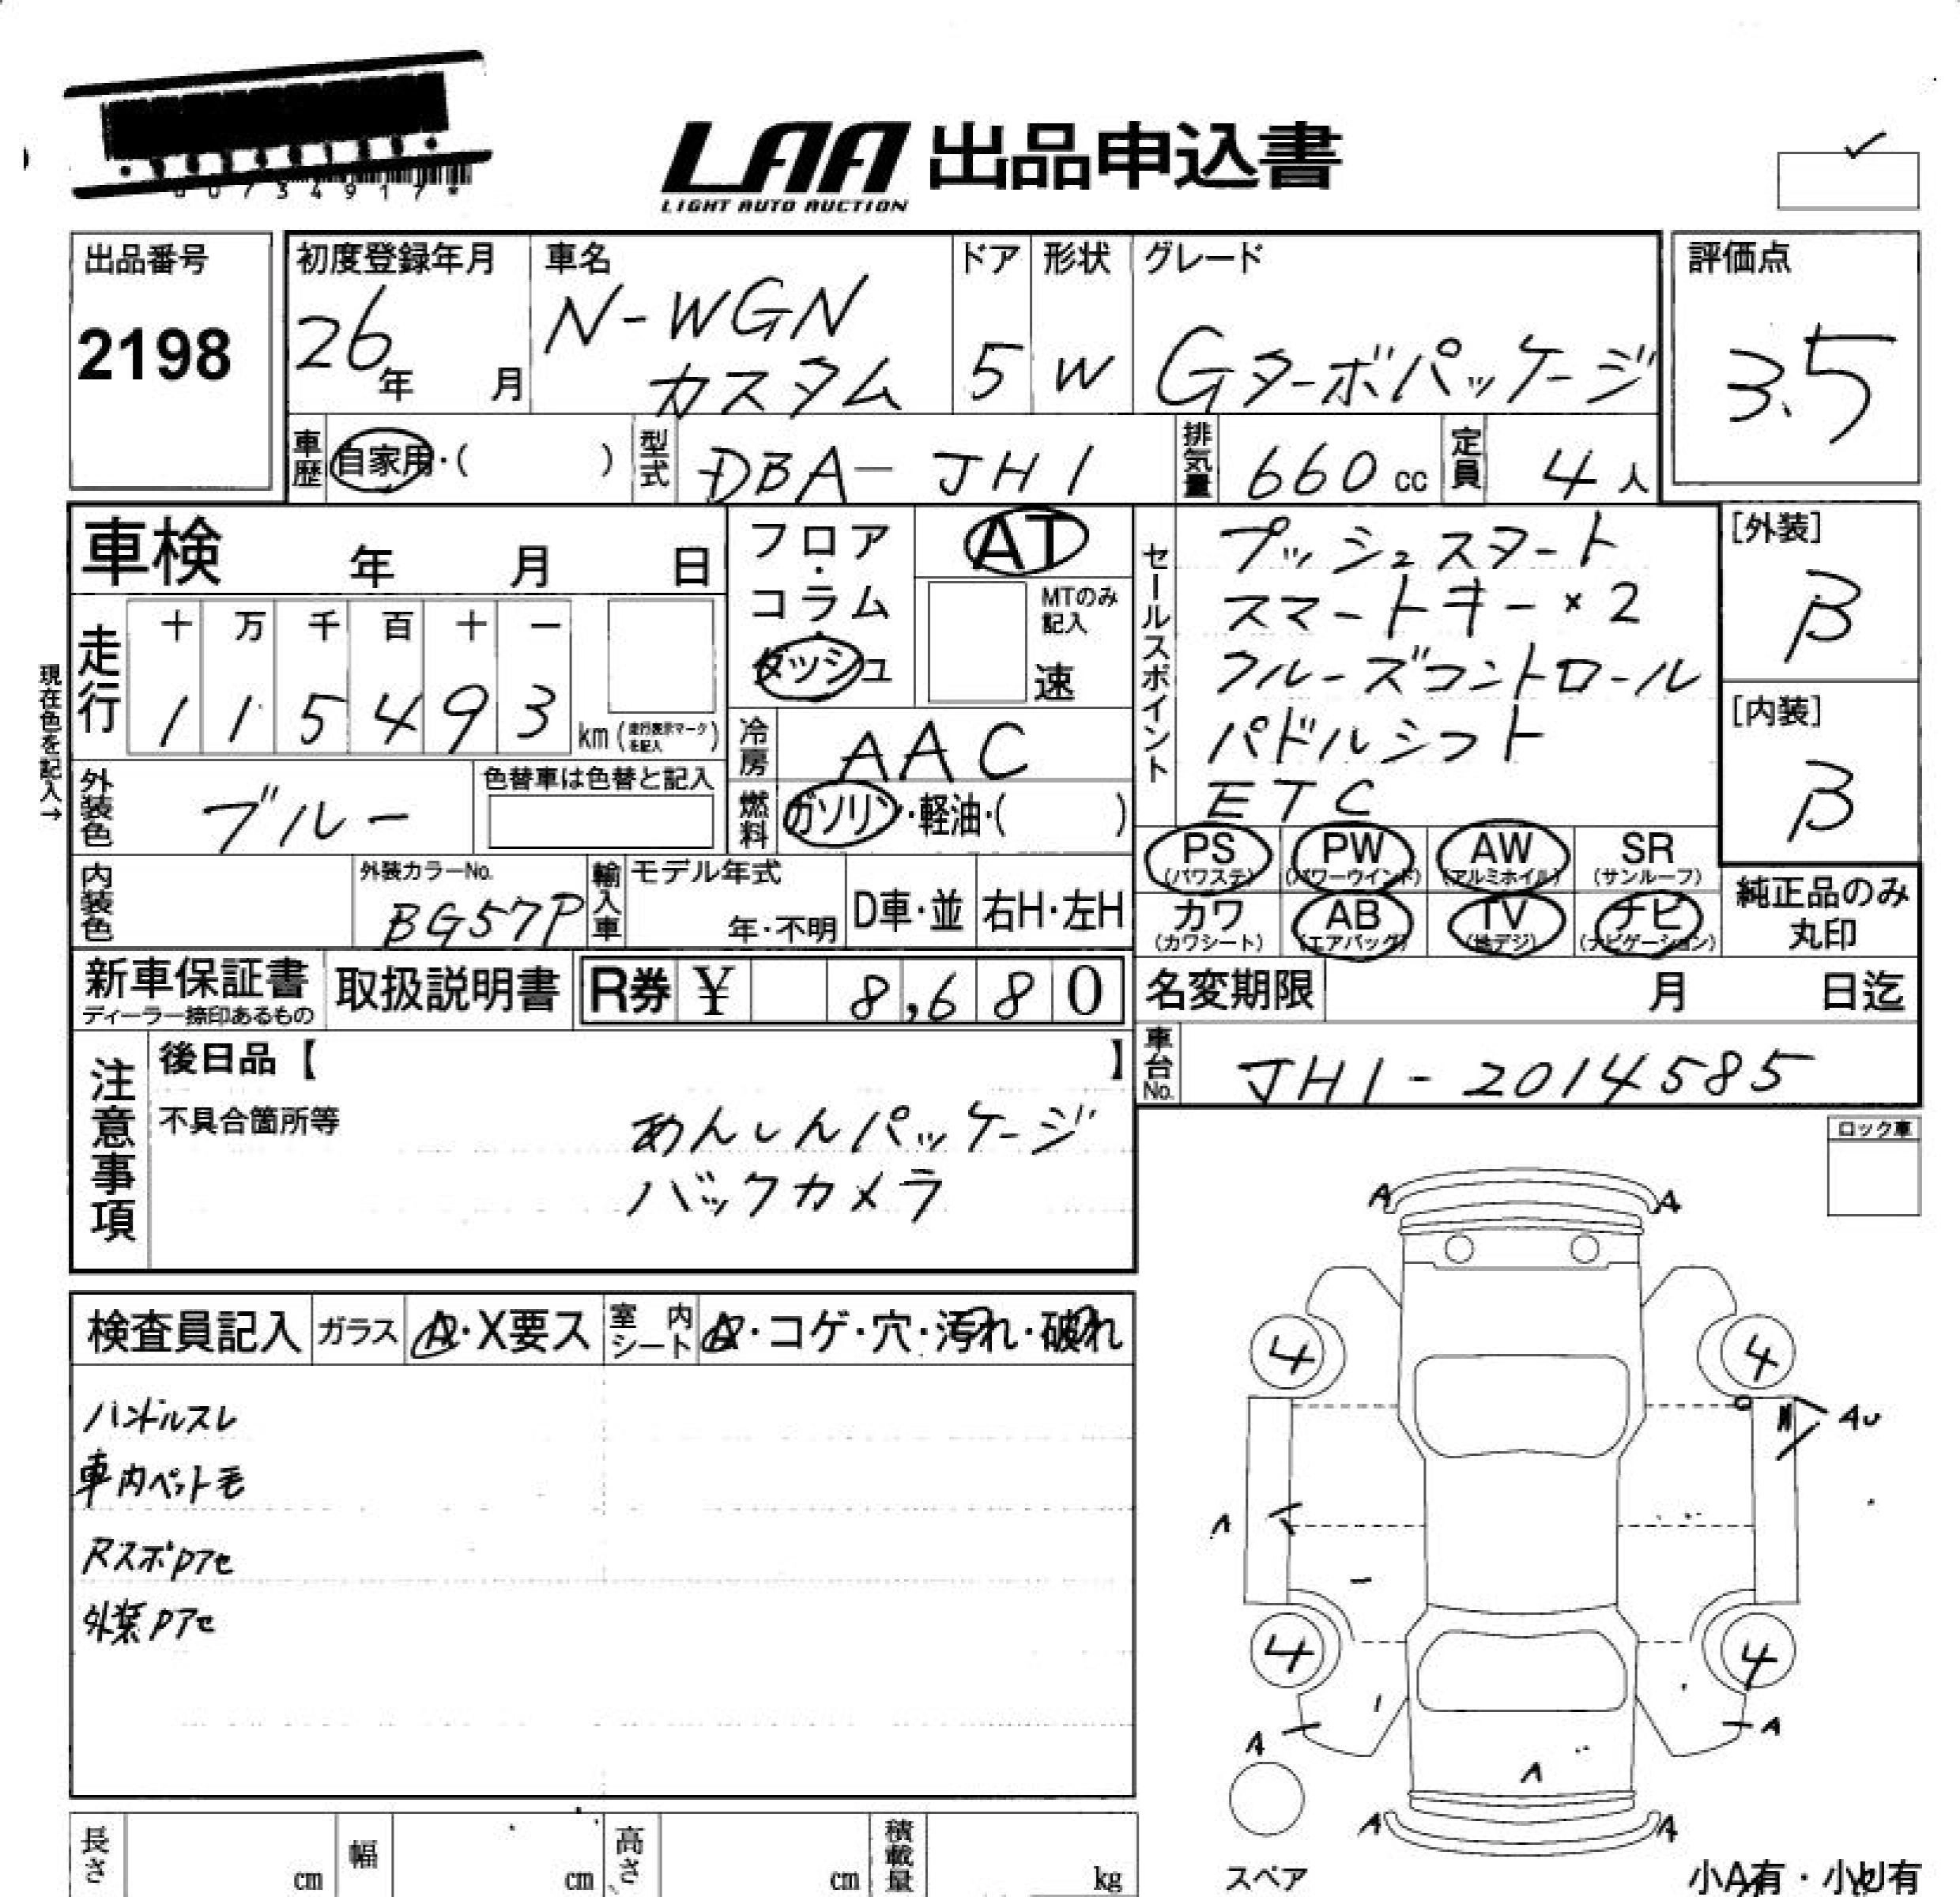 00734917*
LAA 出品申込書
LIGHT AUTO AUCTION
出品番号
2198
初度登録年月
26年 月
車名
N-WGN
カスタム
ドア
5
形状
W
グレード
Gターボパッケージ
評価点
3.5
車歴 自家用・( )
型式 DBA-JH1
排気量 660cc
定員 4人
車検 年 月 日
走行
十 万 千 百 十 一
1 1 5 4 9 3 km(走行表示マークを記入)
現在色を記入→
外装色 ブルー
色替車は色替と記入
フロア・コラム・ダッシュ
AT
MTのみ記入
速
冷房 AAC
燃料 ガソリン・軽油・( )
セールスポイント
プッシュスタート
スマートキー×2
クルーズコントロール
パドルシフト
ETC
[外装]
β
[内装]
β
内装色
外装カラーNo.
BG57P
輸入車
モデル年式
年・不明
D車・並
右H・左H
PS
(パワステ)
PW
(パワーウインド)
AW
(アルミホイル)
SR
(サンルーフ)
カワ
(カワシート)
AB
(エアバッグ)
TV
(地デジ)
ナビ
(ナビゲーション)
純正品のみ
丸印
新車保証書
ディーラー捺印あるもの
取扱説明書
R券 ¥ 8,680
名変期限 月 日迄
車台No. JH1-2014585
注意事項
後日品【 】
不具合箇所等
あんしんパッケージ
バックカメラ
ロック車
検査員記入 ガラス A・X要ス 室内シート A・コゲ・穴・汚れ・破れ
ハンドルスレ
車内ペット毛
Rスポイアセ
外装イアセ
A A
4 4
AU
A
4 4
A A
A
A A
スペア
小A有・小U有
長さ cm 幅 cm 高さ cm 積載量 kg